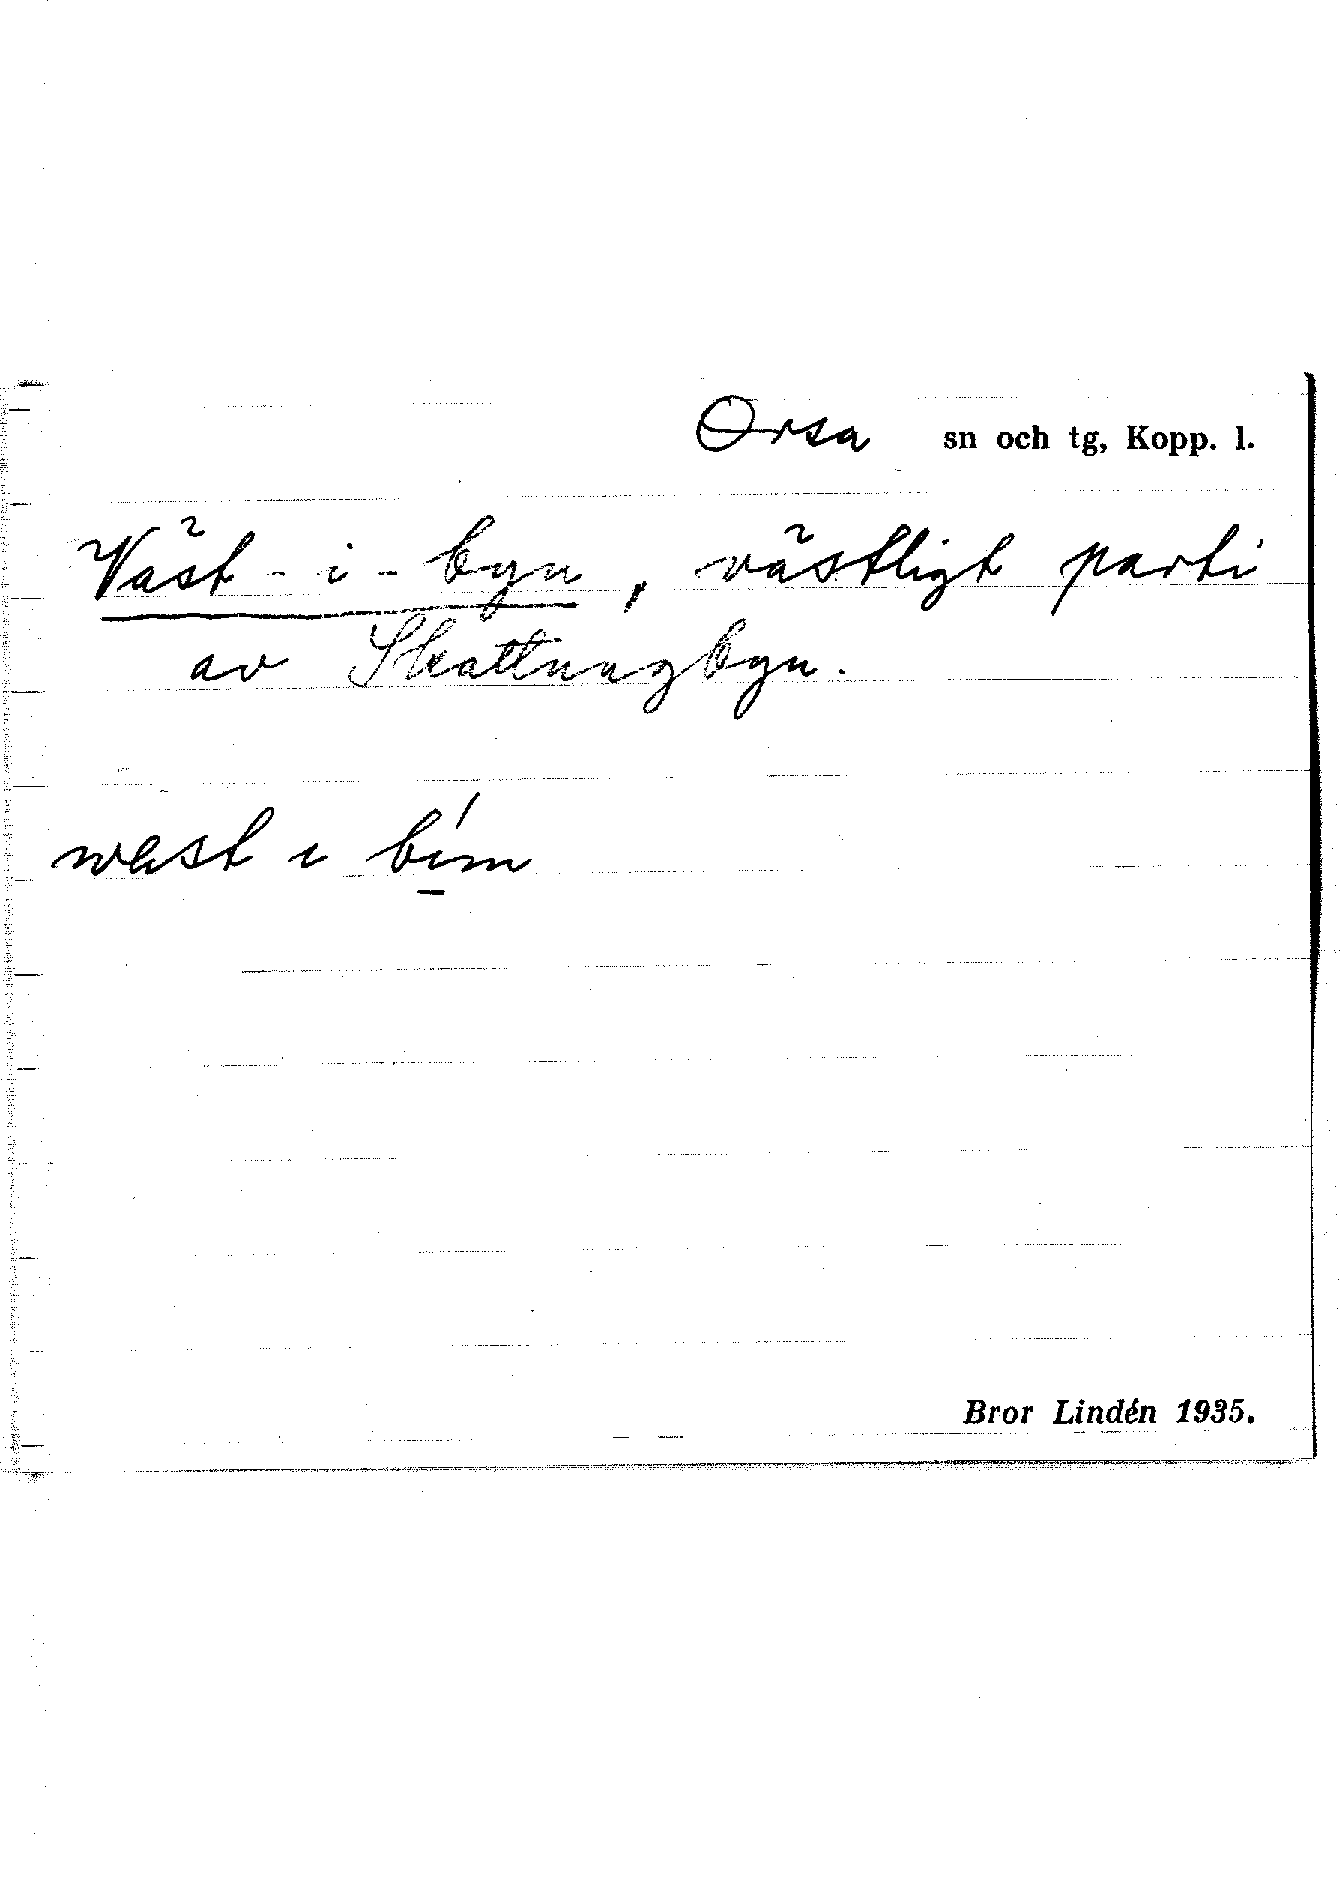 Orsa sn och tg, Kopp. l.
Väst-i-byn, västligt parti
av Skattungbyn.
wäst i bím
Bror Lindén 1935.